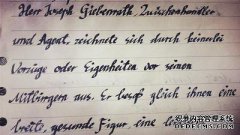 Herr Joseph Giebenrath, Zwischenhändler
und Agent, zeichnete sich durch keinerlei
Vorzüge oder Eigenheiten vor seinen
Mitbürgern aus. Er besaß gleich ihnen eine
breite, gesunde Figur, eine